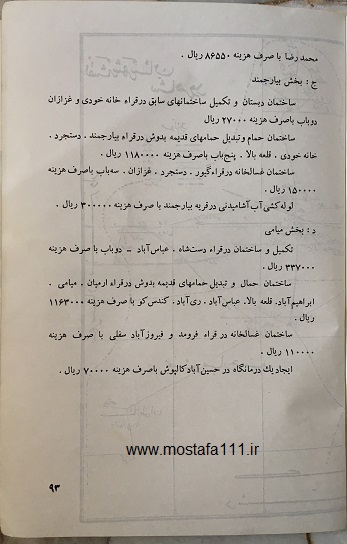 محمد رضا با صرف هزینه ۸۶۵۵۰ ریال .
ج : بخش بیارجمند
ساختمان دبستان و تکمیل ساختمانهای سابق در قراء خانه خودی و غزازان
دوباب با صرف هزینه ۲۷۰۰۰ ریال
ساختمان حمام و تبدیل حمامهای قدیمه بدوش در قراء بیارجمند . دستجرد .
خانه خودی . قلعه بالا . پنج باب با صرف هزینه ۱۱۸۰۰۰۰ ریال .
ساختمان غسالخانه در قراء گیور . دستجرد . غزازان . سه باب با صرف هزینه
۱۵۰۰۰۰ ریال .
لوله کشی آب آشامیدنی در قریه بیارجمند با صرف هزینه ۳۰۰۰۰۰ ریال .
د : بخش میامی
تکمیل و ساختمان در قراء دست شاه . عباس آباد – دوباب با صرف هزینه
۳۳۷۰۰۰ ریال .
ساختمان حمال و تبدیل حمامهای قدیمه بدوش در قراء ارمیان . میامی .
ابراهیم آباد. قلعه بالا. عباس آباد . ری آباد. کندس کو با صرف هزینه ۱۱۶۳۰۰۰
ریال .
ساختمان غسالخانه در قراء فرومد و فیروزآباد سفلی با صرف هزینه
۱۱۰۰۰۰ ریال .
ایجاد یك درمانگاه در حسین آباد کالپوش با صرف هزینه ۷۰۰۰۰ ریال .
www.mostafa111.ir
۹۳